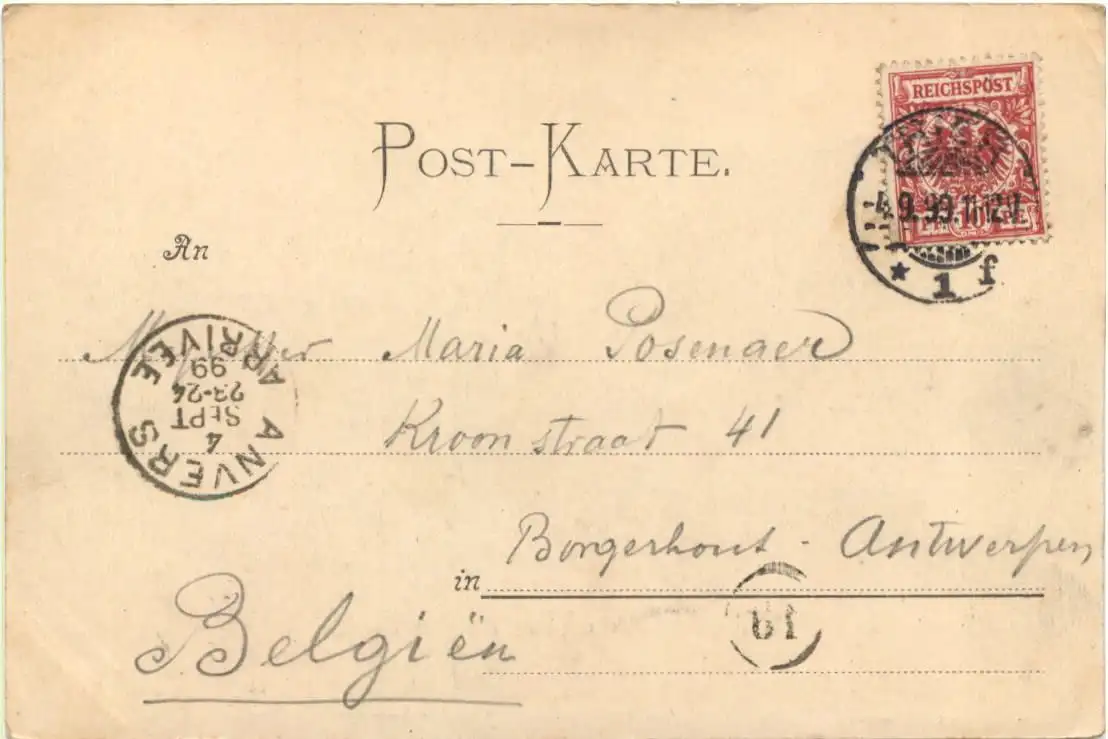 REICHSPOST
POST-KARTE.
4.9.99.11-12V.
* 1 f
An
Maria Posenaer
Kroonstraat 41
ANVERS
4
SEPT
23-24
99
ARRIVÉE
Borgerhout - Antwerpen
in
Belgiën